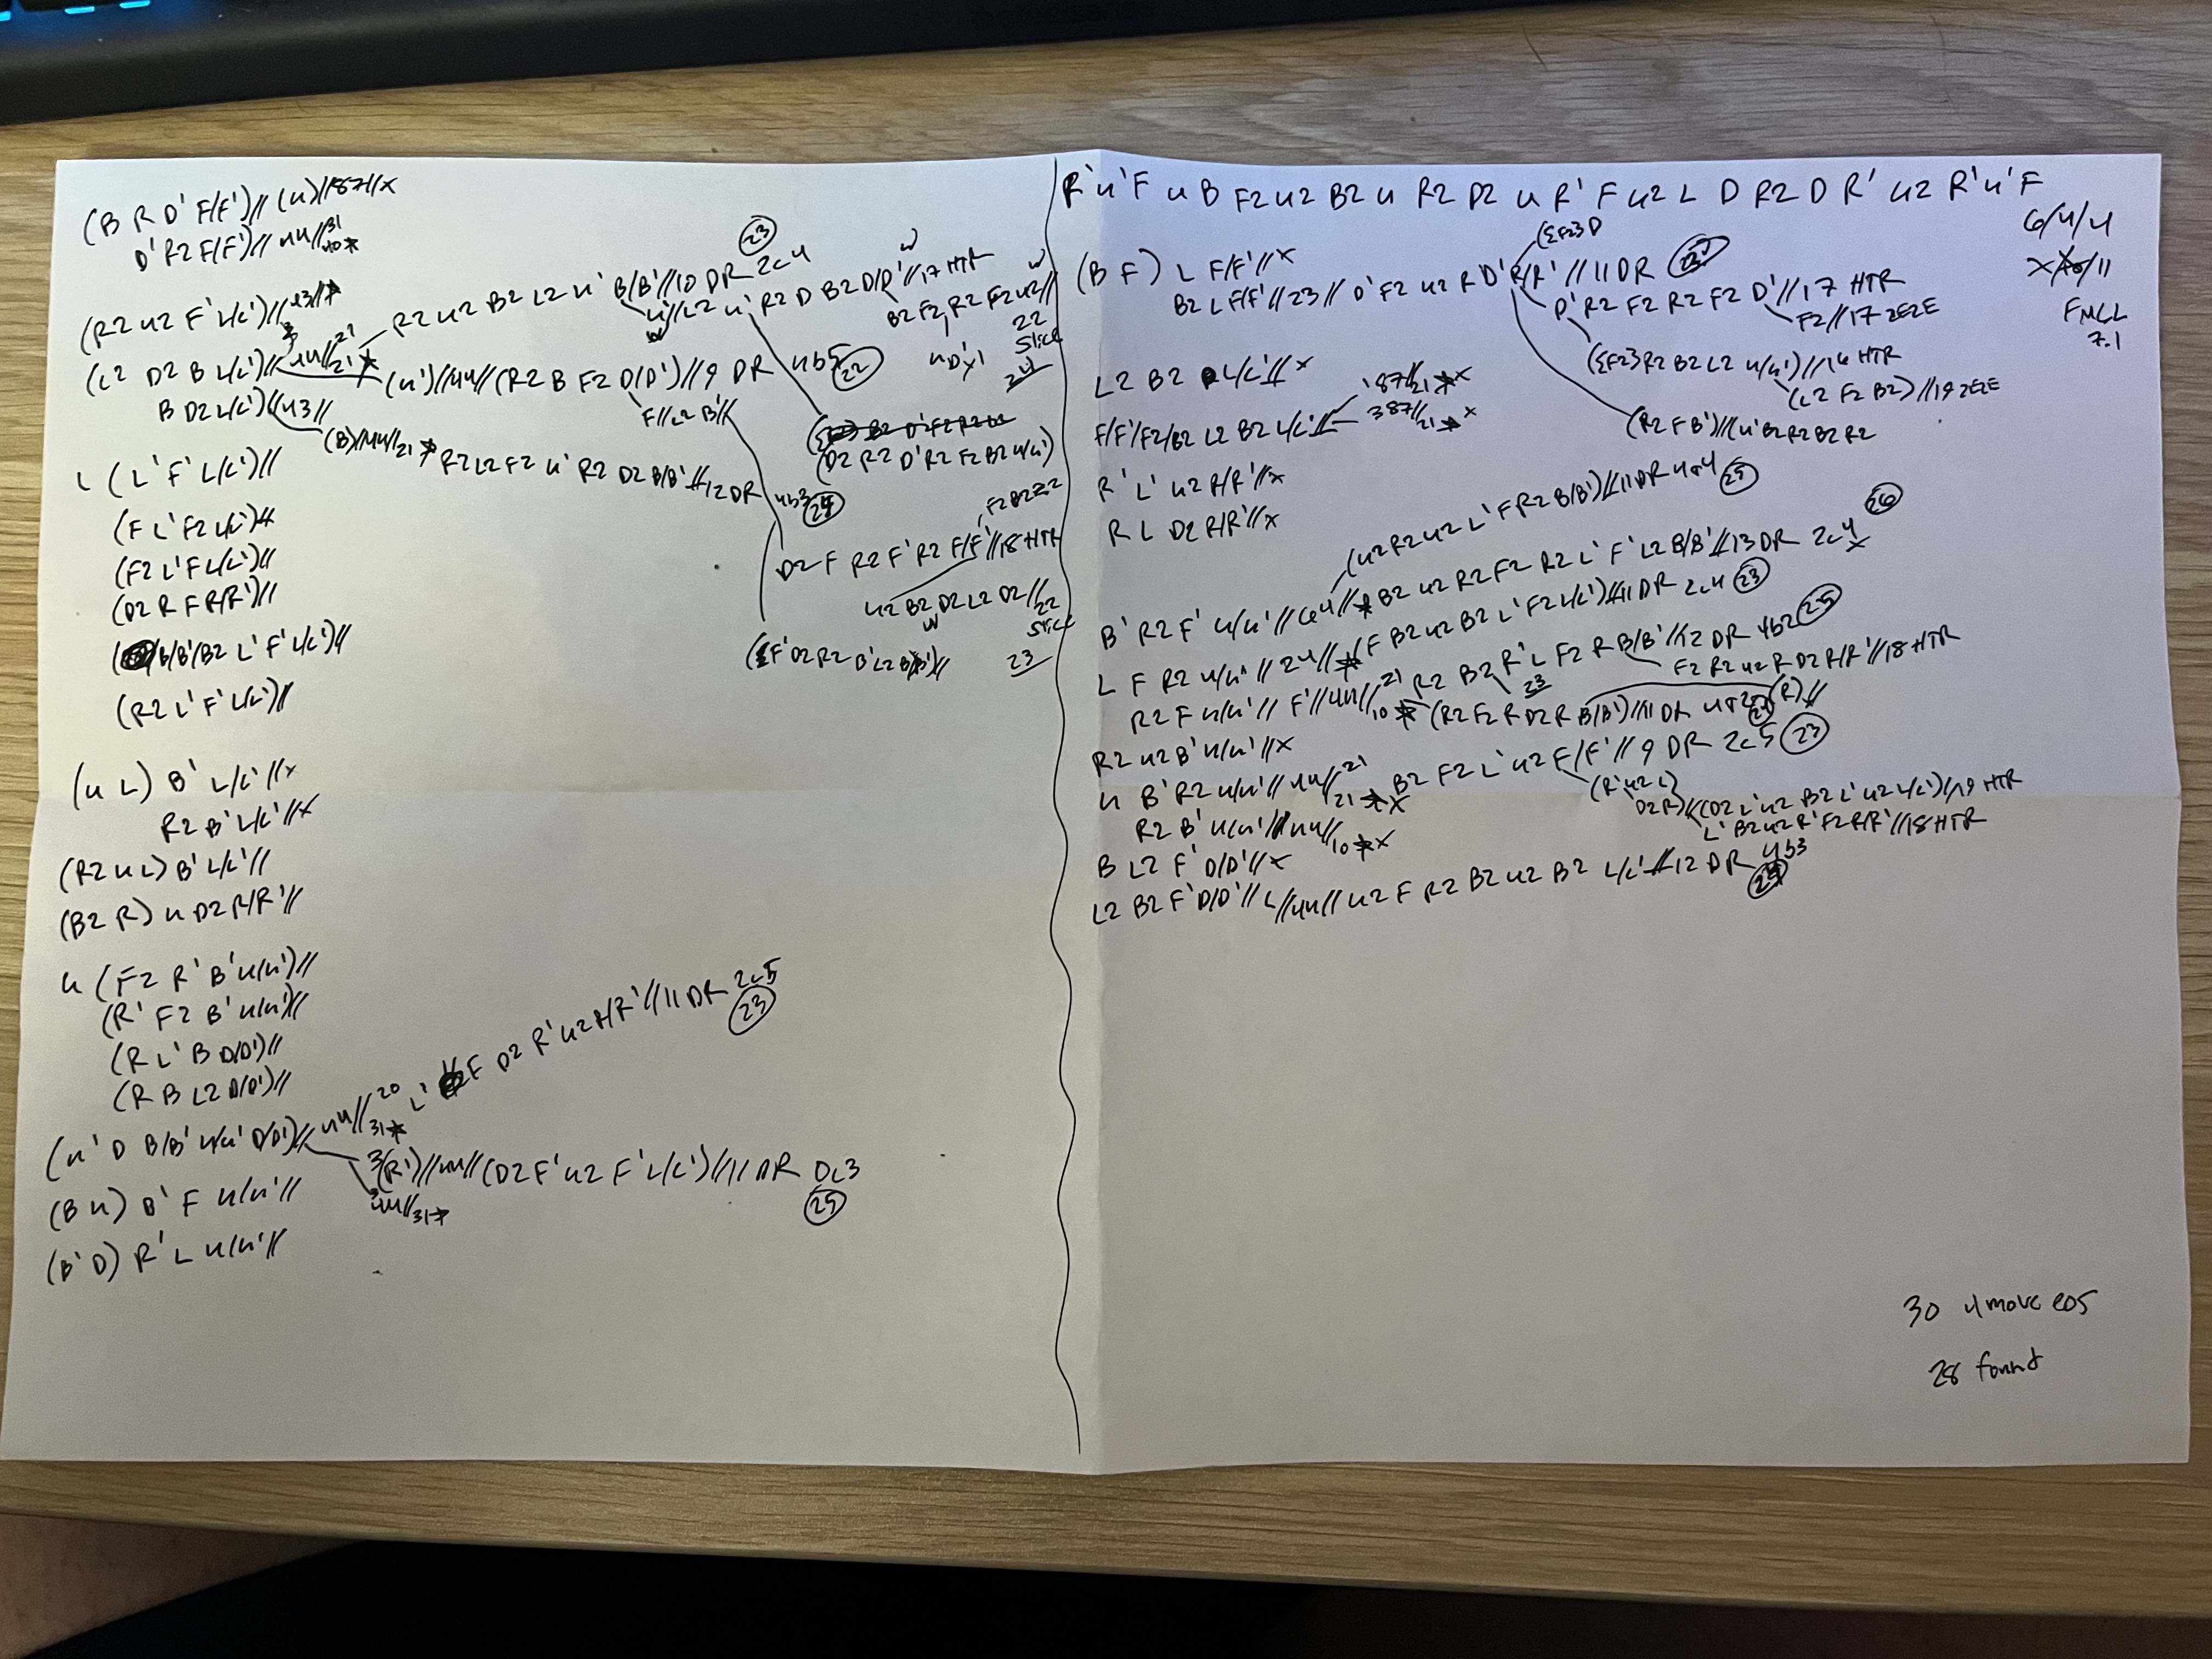 (B R D' F/F')// (u)//187//x
D'R2 F/F')// 4u//31
10*
(R2 u2 F' L/L')//
(L2 D2 B L/L')// 4u//21
21* R2 u2 B2 L2 u' B/B'//10 DR 2c4 23
u'//L2 u' R2 D B2 D/D'//17 HTR
B2 F2 R2 F2 u2//
22
Slice
24
(u')//4u//(R2 B F2 D/D')//9 DR 4b5 22
B D2 L/L')//43//
F//L2 B'//
(D2 R2 D'R2 F2 B2 u/u')
(B)//4u//21* R2 L2 F2 u' R2 D2 B/B'//12 DR 4b3
L (L'F' L/L')//
(F L'F2 L/L')//
(F2 L'F L/L')//
(D2 R F R/R')//
D2 F R2 F' R2 F/F'//18 HTR
u2 B2 D2 L2 D2//22
Slice
23
B/B'/B2 L' F' L/L')//
(R2 L'F' L/L')//
(u L) B' L/L'//x
R2 B'L/L'//x
(R2 u L) B' L/L'//
(B2 R) u D2 R/R'//
u (F2 R' B'u/u')//
(R' F2 B'u/u')//
(R L'B D/D')//
(R B L2 D/D')//
(u'D B/B' u/u' D/D')// 4u//20
31* L' F D2 R'u2 R/R'//11 DR 2c5
23
3(R')//4u//(D2 F'u2 F'L/L')//11 DR 0c3
25
4u//31*
(B u) D' F u/u'//
(B'D) R'L u/u'//
R'u'F u B F2 u2 B2 u R2 D2 u R' F u2 L D R2 D R' u2 R'u'F
6/4/4
FMLL
7.1
(B F) L F/F'//x
B2 L F/F'//23// D'F2 u2 R D'R/R'//11 DR
D'R2 F2 R2 F2 D'//17 HTR
F2//17 2E2E
({F2}R2 B2 L2 u/u')//16 HTR
(L2 F2 B2)//19 2E2E
(R2 F B')//(u'B2 R2 B2 R2
L2 B2 L/L'//x
F/F'/F2/B2 L2 B2 L/L'// 187//21*x
387//21*x
R' L' u2 R/R'//x
R L D2 R/R'//x
(u2 R2 u2 L'F R2 B/B')//11 DR 4a4 25
B'R2 F' u/u'//64//* B2 u2 R2 F2 R2 L'F'L2 B/B'//13 DR 2c4
x
26
L F R2 u/u'//24//*(F B2 u2 B2 L'F2 L/L')//11 DR 2c4 23
R2 F u/u'//F'//4u//21
10* R2 B2 R'L F2 R B/B'//12 DR 4b2 25
23
F2 R2 u2 R D2 R/R'//18 HTR
(R2 F2 R D2 R B/B')//11 DR 4a2 (R)//
R2 u2 B'u/u'//x
u B'R2 u/u'//4u//21
21*x B2 F2 L'u2 F/F'//9 DR 2c5 23
(R'u2 L)
D2 R)//(D2 L'u2 B2 L'u2 L/L')//19 HTR
L'B2 u2 R'F2 R/R'//18 HTR
R2 B'u/u'//4u//10*x
B L2 F'D/D'//x
L2 B2 F'D/D'//L//4u//u2 F R2 B2 u2 B2 L/L'//12 DR 4b3
30 4move eos
28 found